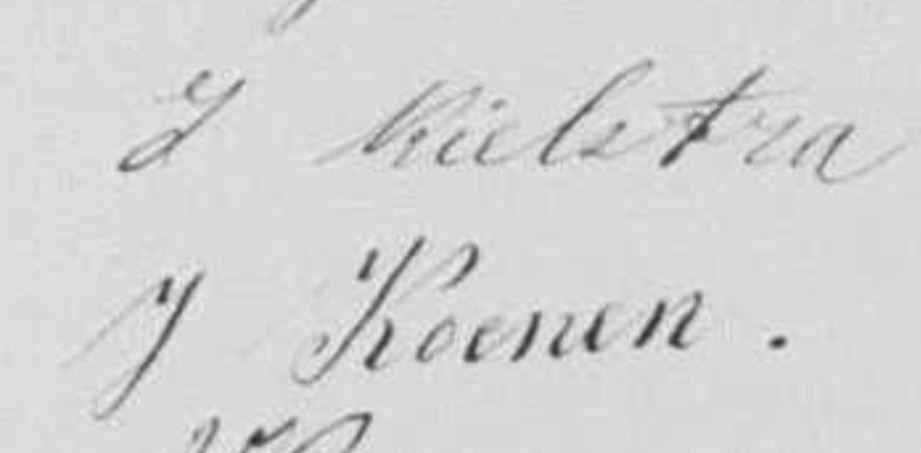 J Kielstra
J Koenen.